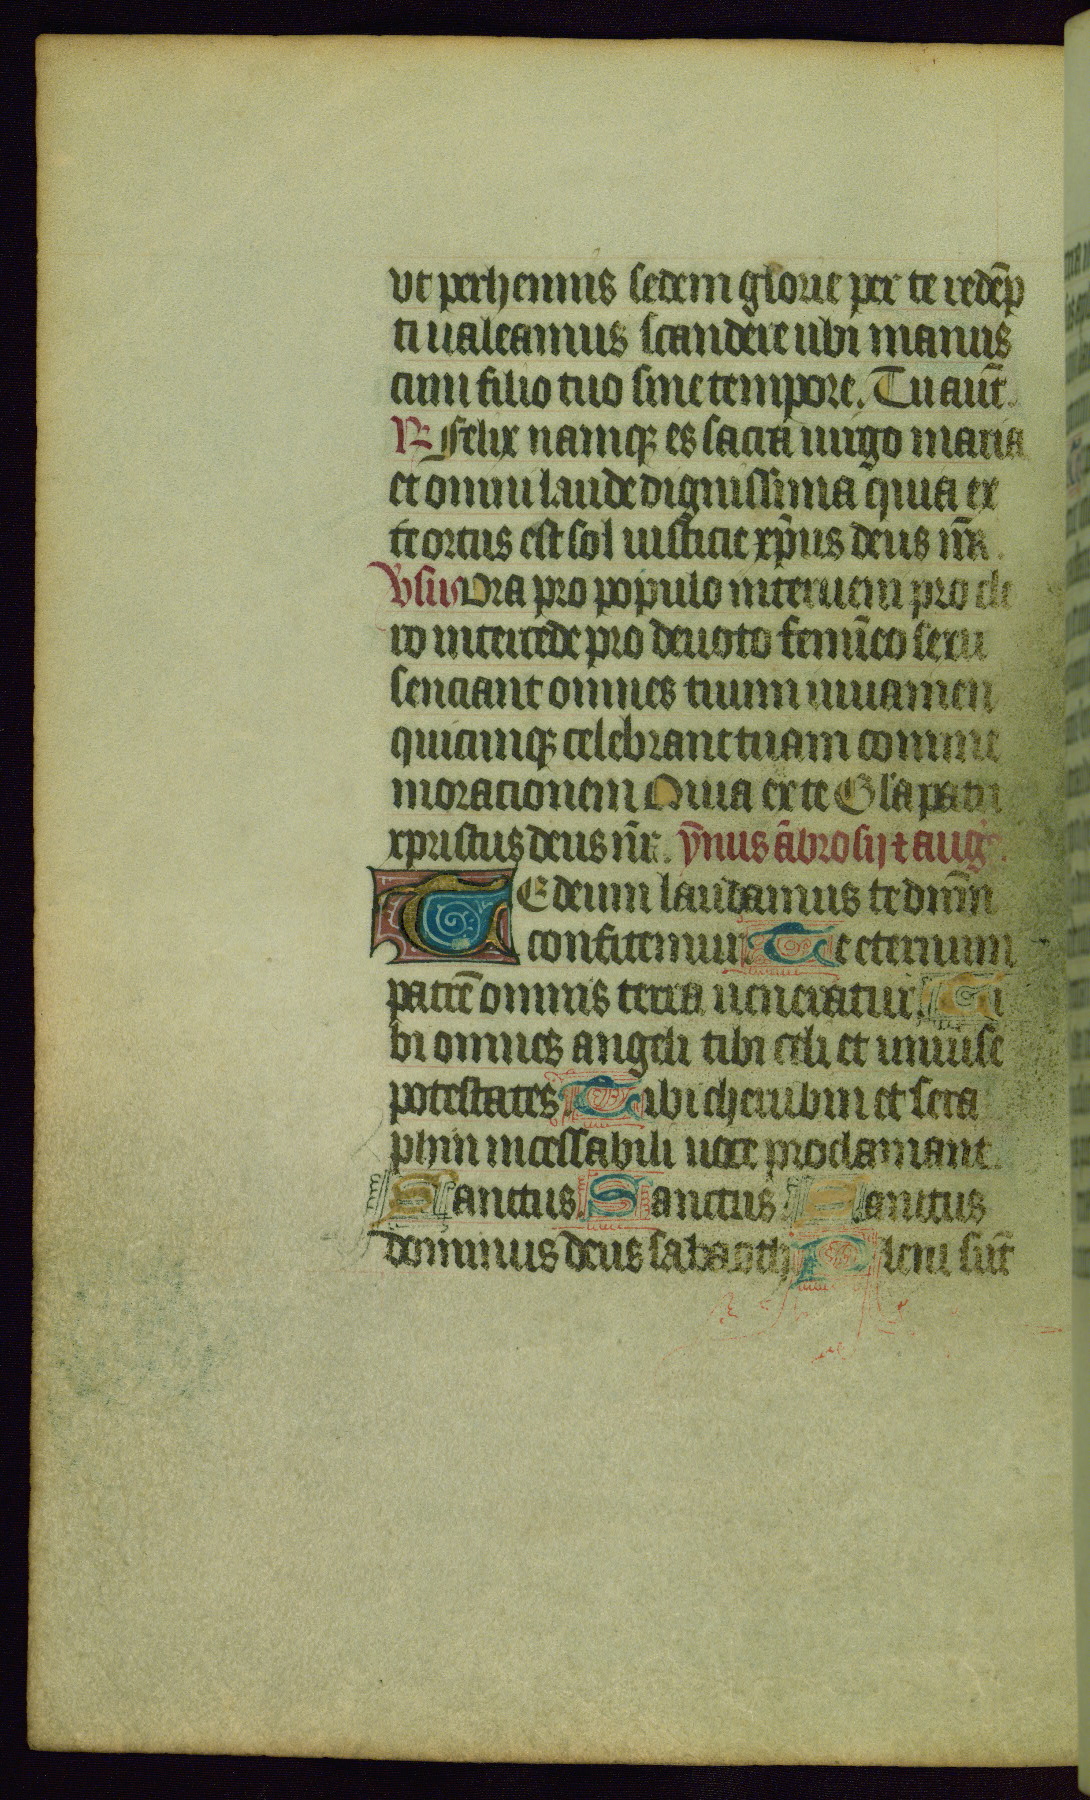 ut perhennis sedem glorie per te redēp
ti ualeamus scandere ubi manus
cum filio tuo sine tempore. Tu aut̄.
R Felix namqꝫ es sacra uirgo maria
et omni laude dignissima quia ex
te ortus est sol iusticie xp̄us deus nr̄.
Vsus Ora pro populo interueni pro cle
ro intercede pro deuoto femīeo sexu
senciant omnes tuum iuuamen
quicunqꝫ celebrant tuam comme
moracionem Quia ex te Gl'a patri
xpristus deus nr̄. ȳnus ābrosij ⁊ aug
TE deum laudamus te dnm̄
confitemur Te eternum
patrē omnis terra ueneratur Ti
bi omnes angeli tibi celi et uniuse
potestates Tibi cherubin et sera
phin incessabili uoce proclamant.
Sanctus Sanctus Sanctus
dominus deus sabaoth Pleni sūt